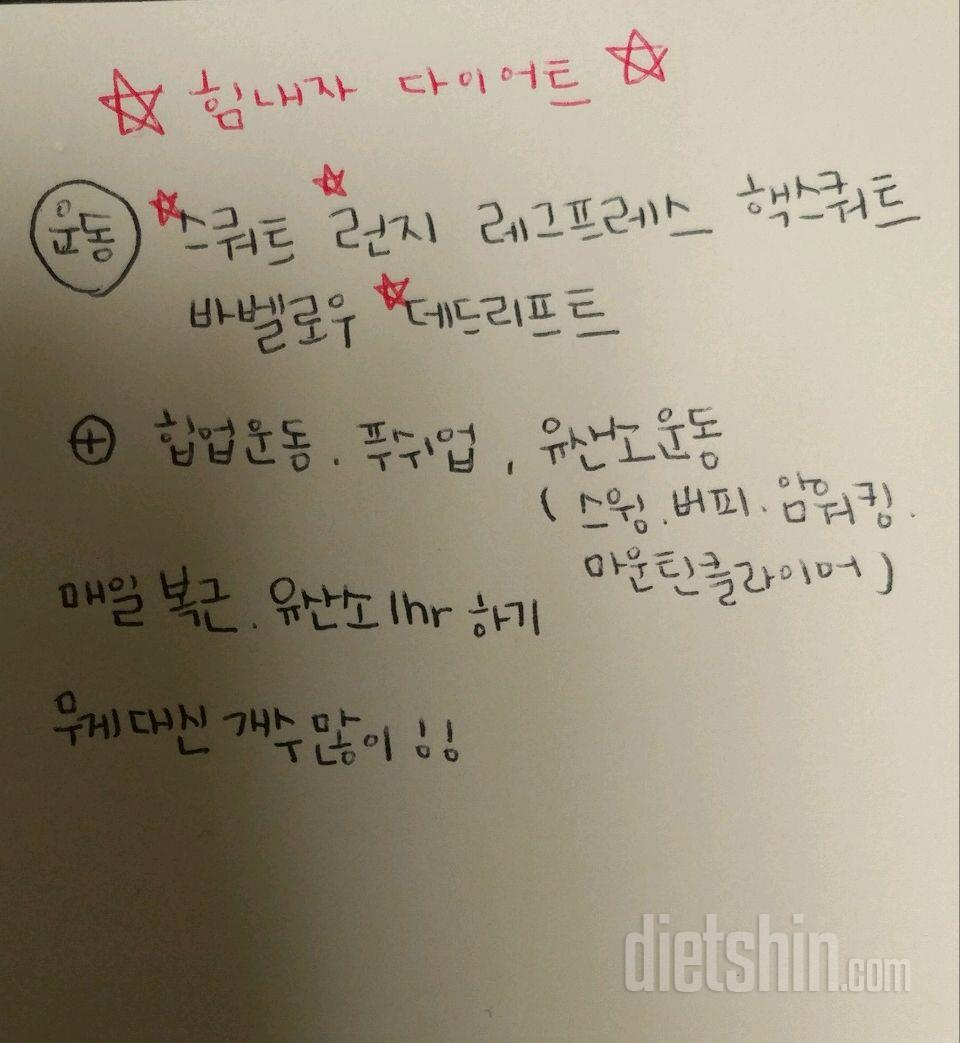 ☆ 힘내자 다이어트 ☆
운동 ☆스쿼트 ☆런지 레그프레스 핵스쿼트
바벨로우 ☆데드리프트
⊕ 힙업운동. 푸쉬업, 유산소운동
(스윙.버피.암워킹.
마운틴클라이머)
매일 복근. 유산소 1hr 하기
무게대신 개수많이 !!
dietshin.com